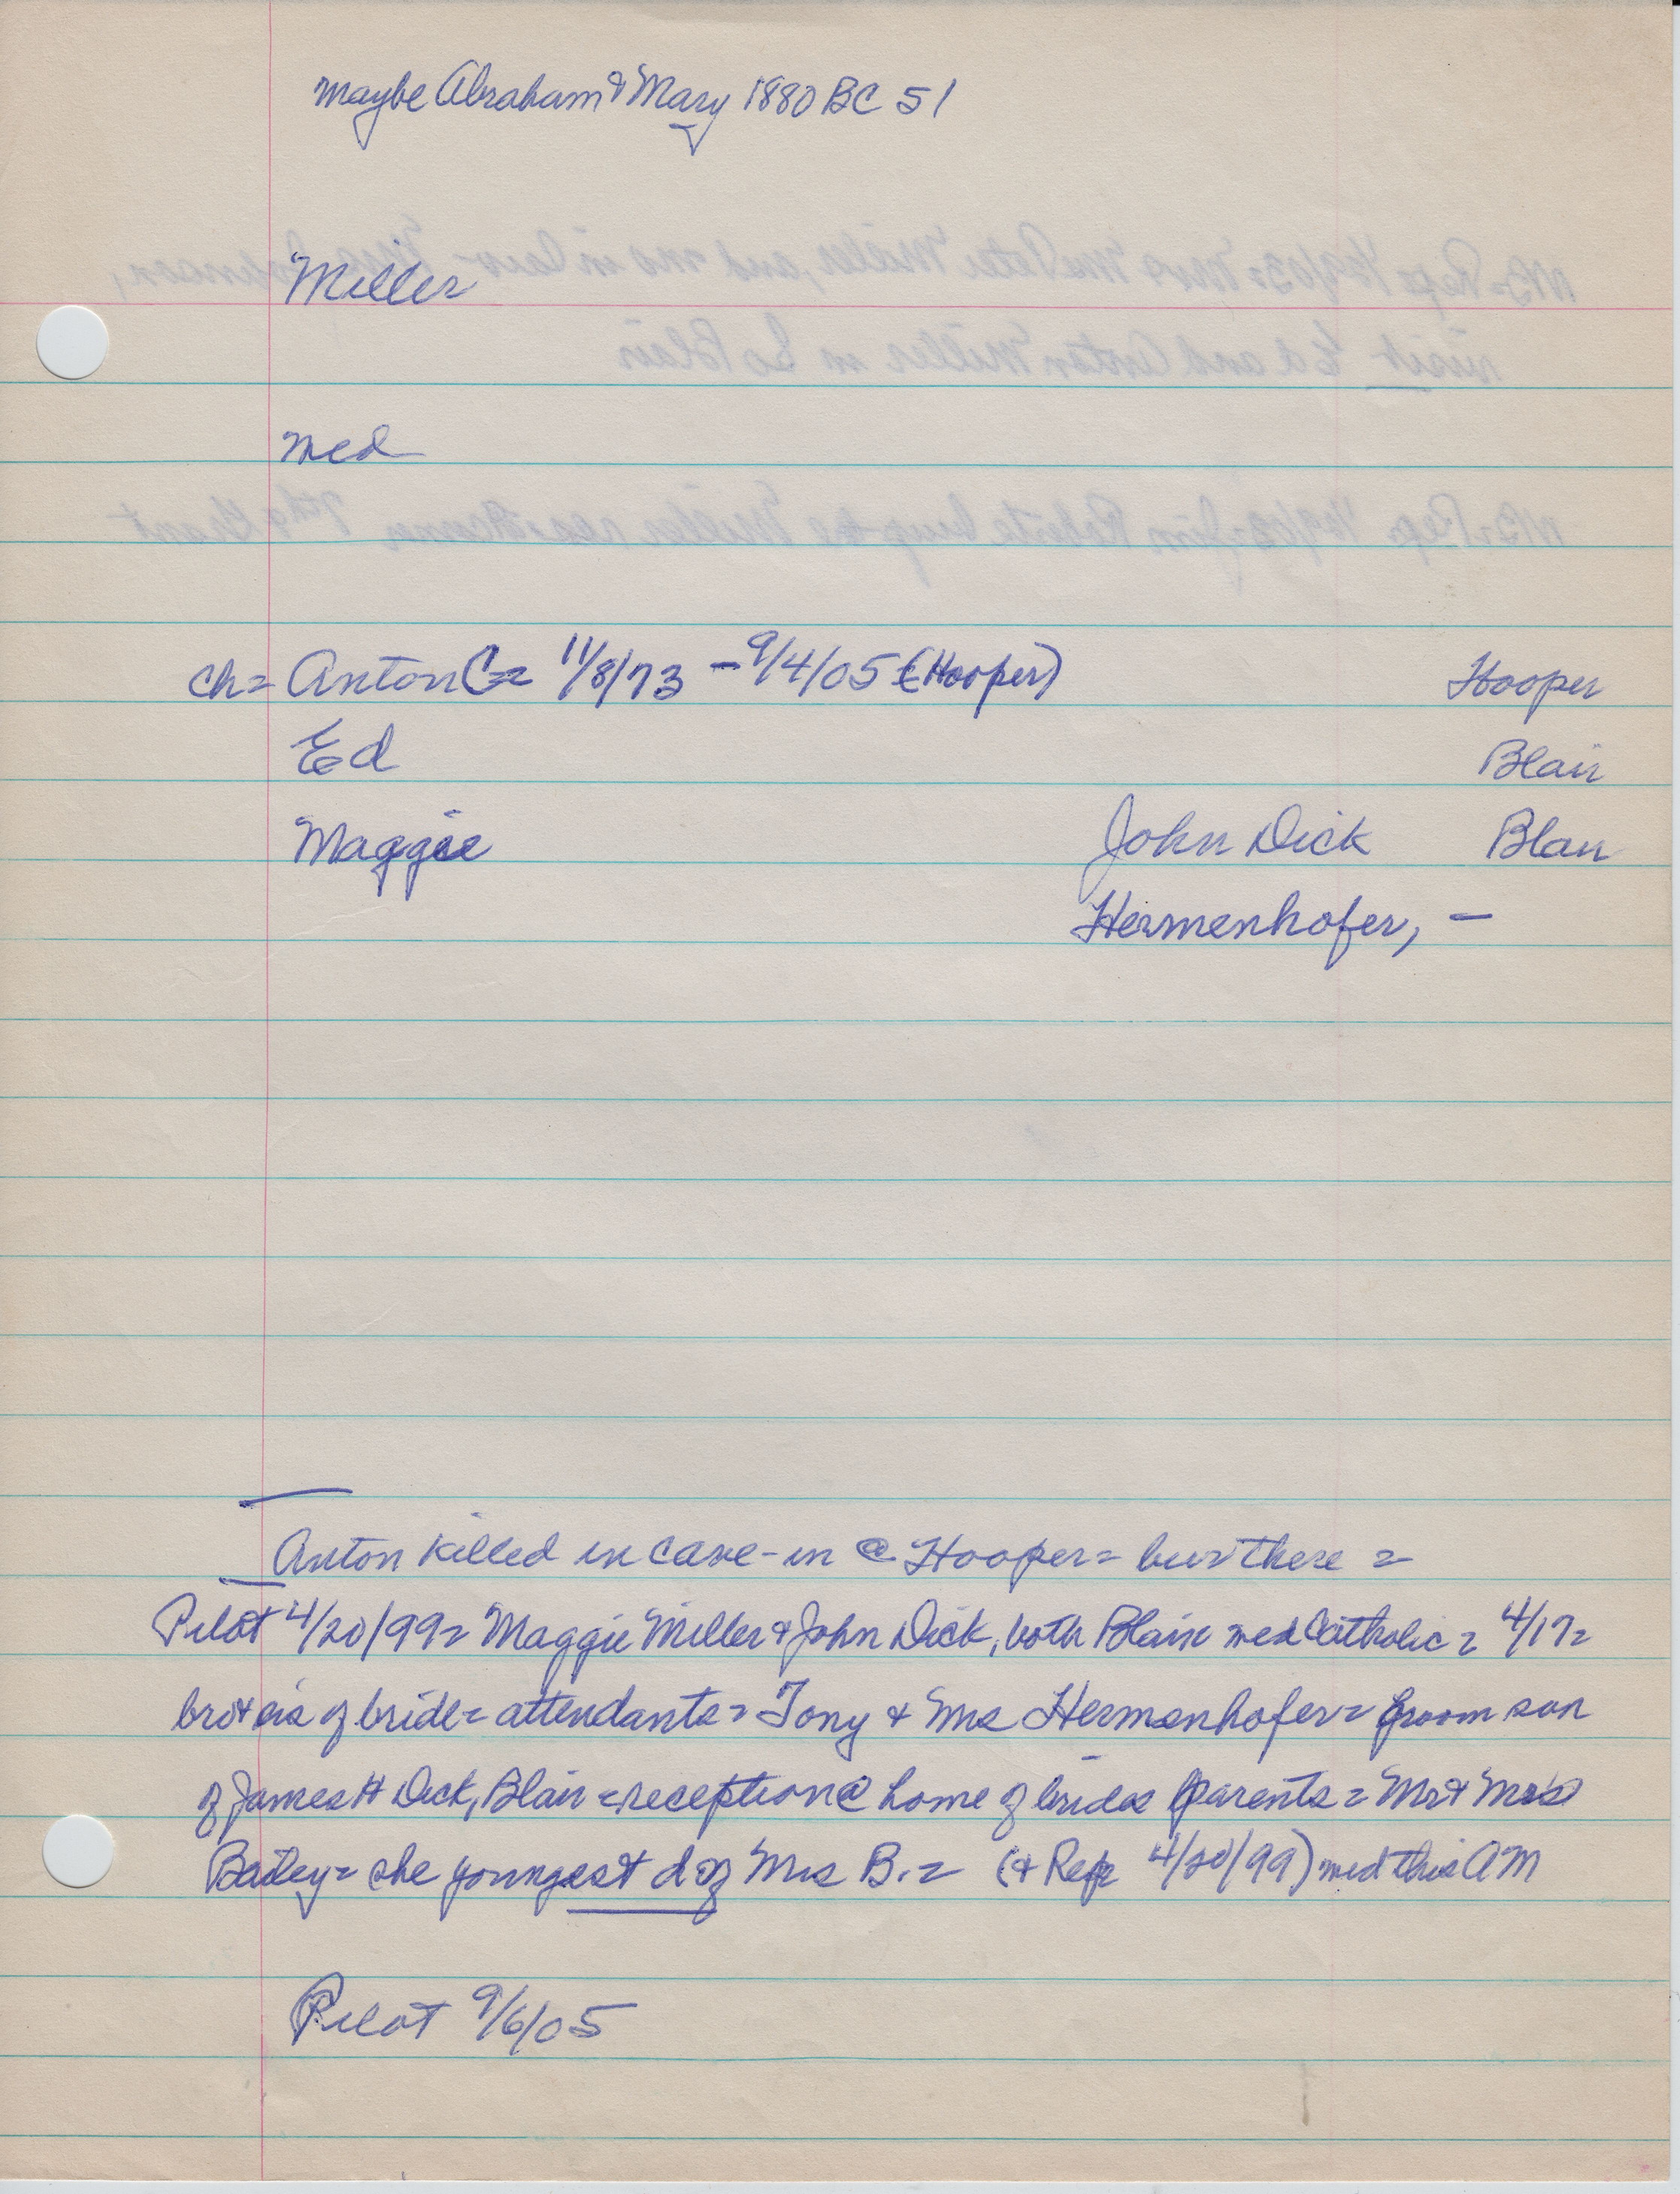 maybe Abraham & Mary 1880 BC 51
Miller
med
ch= Anton C= 11/8/73 - 9/4/05 (Hooper) Hooper
Ed Blair
Maggie John Dick Blair
Hermenhofer, -
Anton killed in cave-in @ Hooper= bur there =
Pilot 4/20/99= Maggie Miller & John Dick, both Blair med Catholic = 4/17=
bro & sis of bride= attendants= Tony & Mrs Hermenhofer= groom son
of James H Dick, Blair = reception @ home of brides parents = Mr & Mrs
Bailey= she youngest d of Mrs B. = (& Rep 4/20/99) med this AM
Pilot 9/6/05